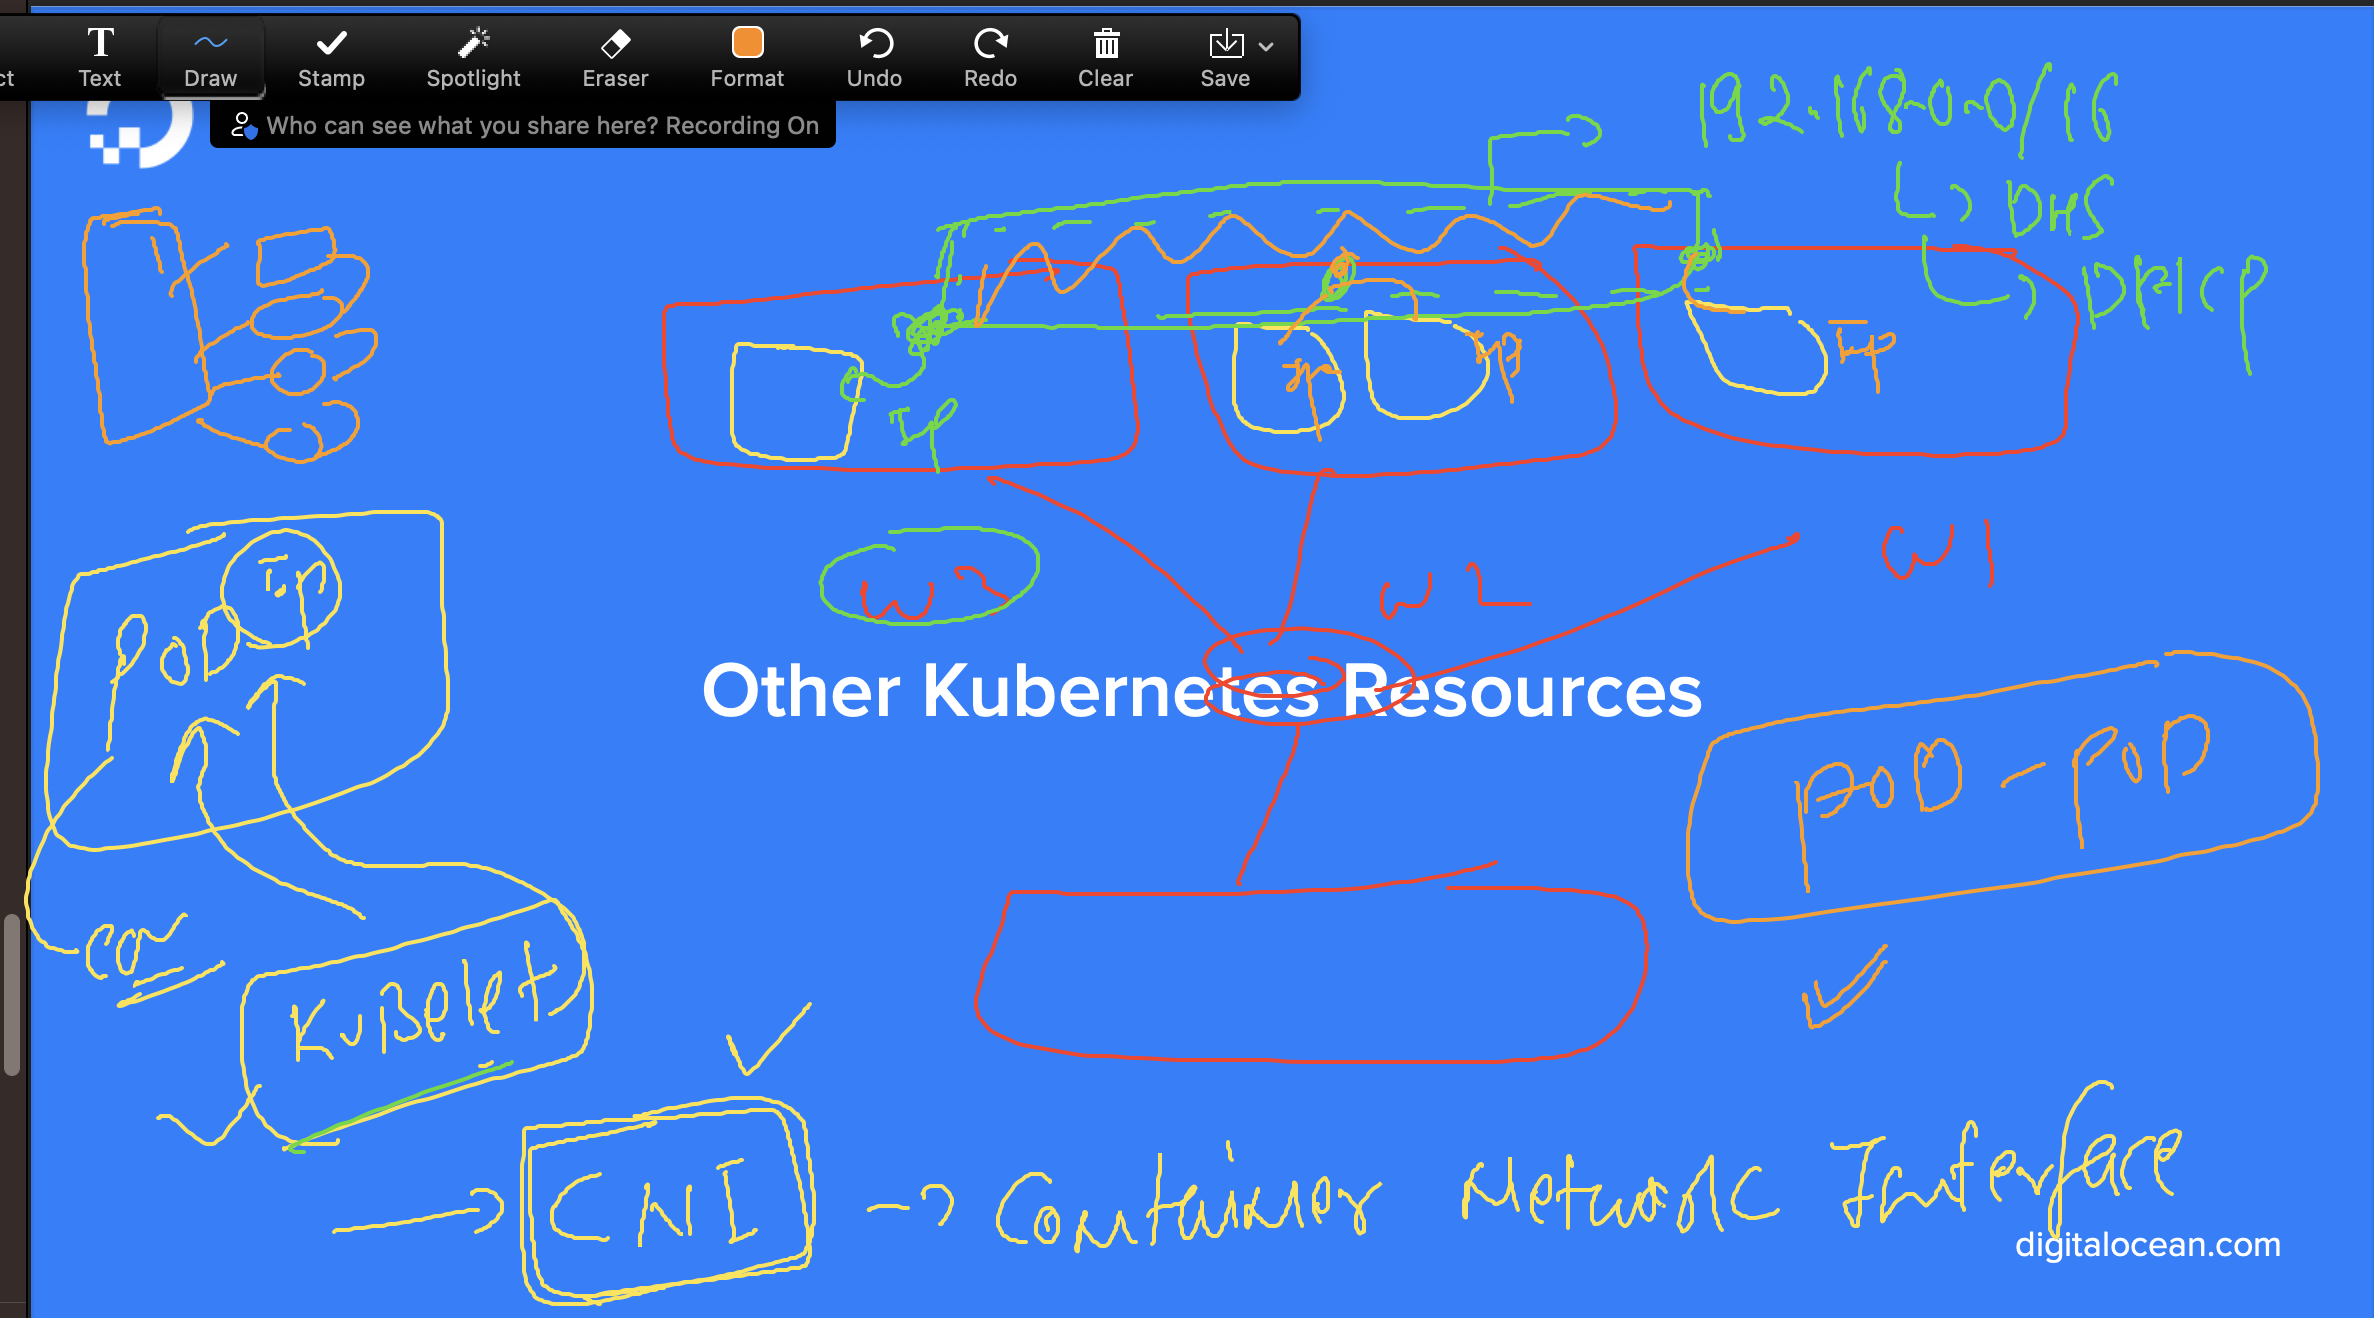 ct Text Draw Stamp Spotlight Eraser Format Undo Redo Clear Save
Who can see what you share here? Recording On
192.168.0.0/16
DHS
DHCP
IP
IP
IP
IP
W3
W2
W1
IP
POD
Other Kubernetes Resources
POD - POD
con
KuBelet
CNI -> Container Network Interface
digitalocean.com